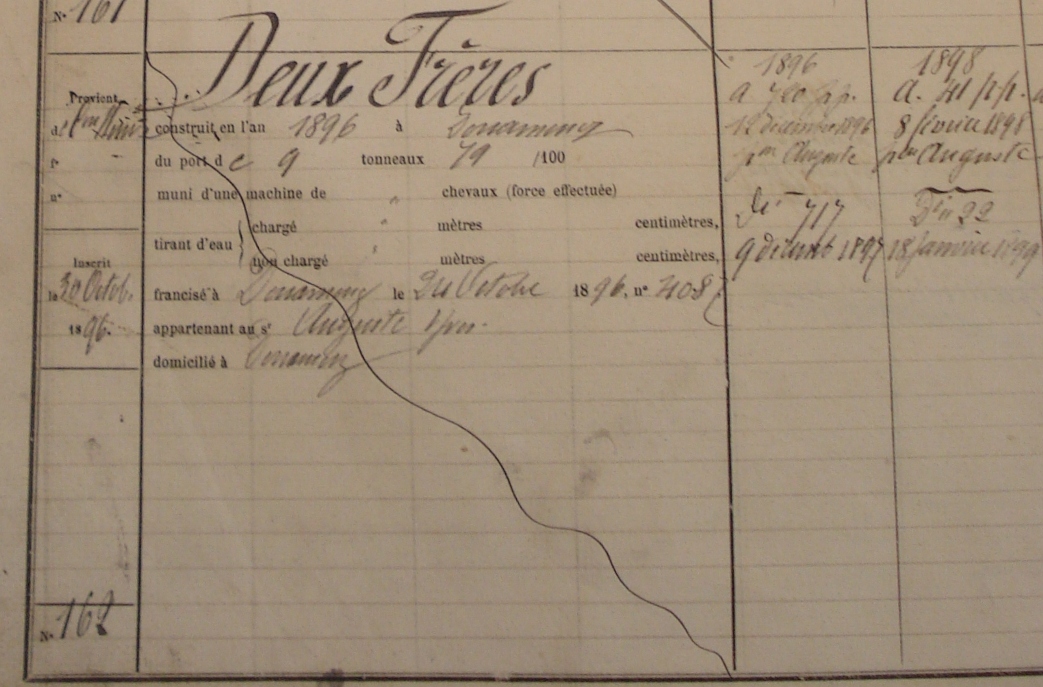 N° 161
Deux Frères
Provient
d
construit en l'an 1896 à Douarnenez
f° "
du port de 9 tonneaux 79 /100
n°
muni d'une machine de " chevaux (force effectuée)
tirant d'eau { chargé " mètres centimètres,
non chargé " mètres centimètres,
Inscrit
le 30 Octob.
1896.
francisé à Douarnenez le 24 Octobre 1896, n° 408
appartenant au sr Auguste
domicilié à Douarnenez
N° 162
1896
12 décembre 1896
Auguste
717
9 décemb 1897
1898
A. 41 p.p.
8 février 1898
Auguste
Dn 22
18 Janvier 1899